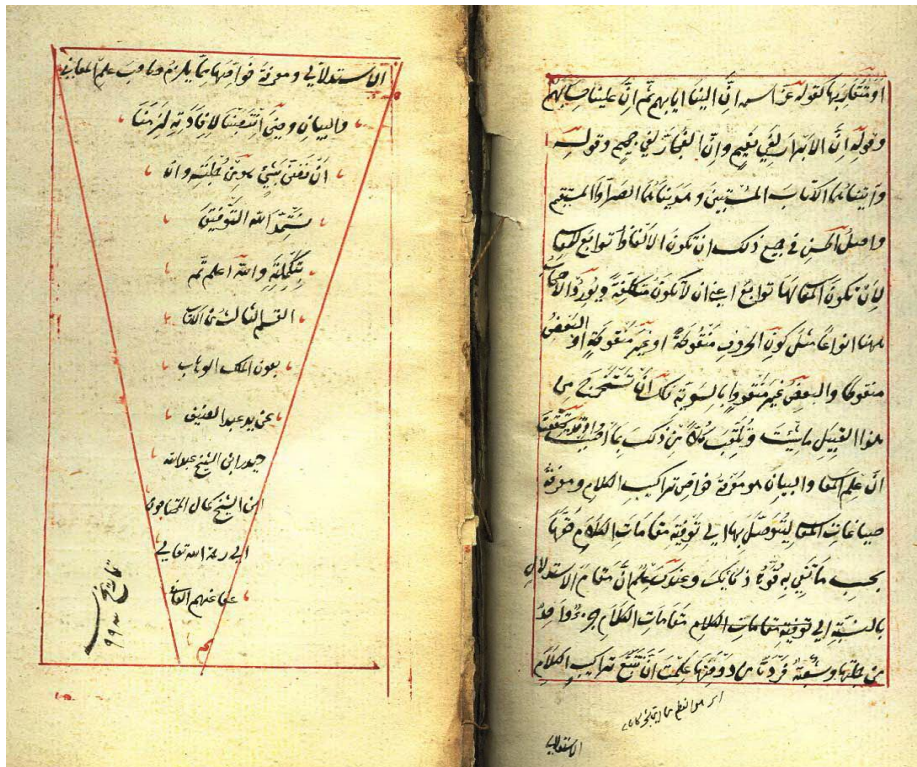 او متقاربها كقوله عز اسمه انَّ الينا ايابهم ثم انَّ علينا حسابهم
وقوله انَّ الابرار لفي نعيم وانَّ الفجار لفي جحيم وقوله
واتيناهما الكتاب المستبين وهديناهما الصراط المستقيم
واصل الحسن في جميع ذلك ان تكون الالفاظ توابع للمعاني
لا ان تكون المعاني لها توابع اعني ان لا تكون متكلفة ويورد الاصحاب
ههنا انواعا مثل كون الحروف منقوطة او غير منقوطة او البعض
منقوطا والبعض غير منقوط بالسوية فلك ان تستخرج من
هذا القبيل ما شئت وتلقب كلا من ذلك بما احببت
ان علم المعاني والبيان هو معرفة خواص تراكيب الكلام ومعرفة
صياغات المعاني ليتوصل بها الى توفية مقامات الكلام حقها
بحسب ما يفي به قوة ذكائك وعندك علم انَّ مقام الاستدلال
بالنسبة الى توفية مقامات الكلام جزء واحد
من جملتها وشعبة فردة من دوحتها علمت ان تتبع تراكيب الكلام
الاستدلالي
الاستدلالي ومعرفة خواصها مما يلزم صاحب علم المعاني
والبيان وحين انتصبنا لافادته لزمنا
ان لا نضن بشيء هو من جملته وان
نستمد الله التوفيق
بتكملته والله اعلم تم
القسم الثالث من الكتاب
بعون الملك الوهاب
عن يد عبد الضعيف
حيدر ابن الشيخ عبد الله
ابن الشيخ كمال المحتاجون
الى رحمة الله تعالى
عفا عنهم
تم
تاريخ سنه ٩٩